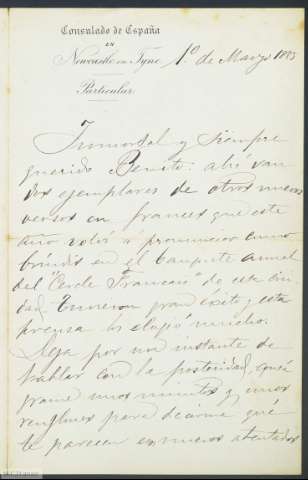 Consulado de España
en
Newcastle on Tyne
1.º de Marzo 1885
Particular.
Inmortal y siempre
querido Benito: ahí van
dos ejemplares de otros nuevos
versos en frances que este
año volví á pronunciar como
brindis en el banquete anual
del "Cercle Francais" de esta ciu-
dad. Tuvieron gran exito y esta
prensa los elogió mucho.
Deja por un instante de
hablar con la posteridad, y
dame unos minutos y unos
renglones para decirme qué
te parecen esos nuevos atentados